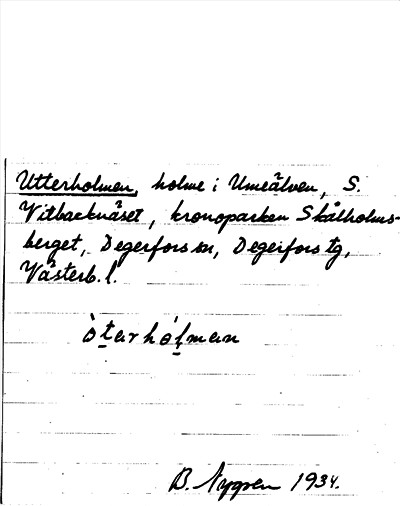 Utterholmen, holme i Umeälven, S.
Vitbacknäset, kronoparken Skålholms-
berget, Degerfors sn, Degerfors tg,
Västerb. l.
òt̲arhól̲man
B. Nygren 1934.